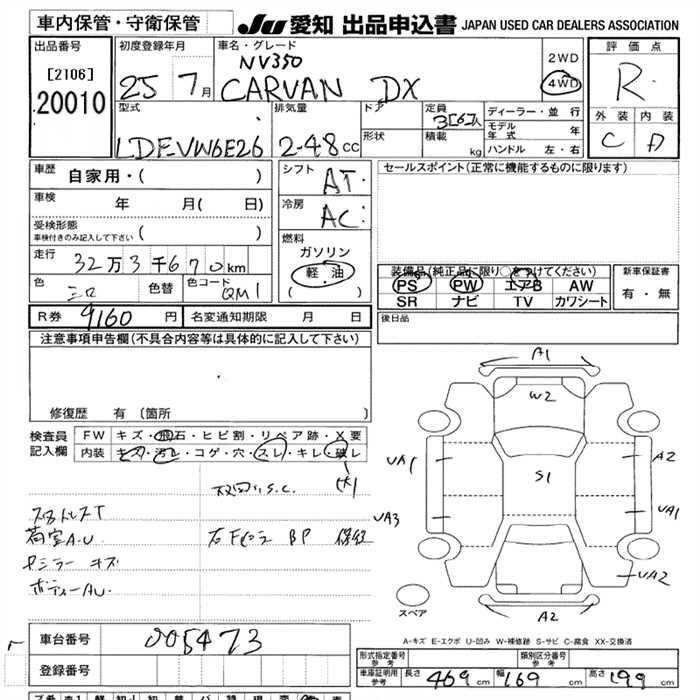 車内保管・守衛保管
JU 愛知 出品申込書 JAPAN USED CAR DEALERS ASSOCIATION
出品番号
[2106]
20010
初度登録年月
25 7月
車名・グレード
NV350
CARVAN DX
2WD
4WD
評価点
R
外装 内装
C D
型式
LDF-VW6E26
排気量
2-48cc
ドア
形状
定員
3[6]人
積載 kg
ディーラー・並行
モデル年式 年
ハンドル 左・右
車歴 自家用・( )
車検 年 月( 日)
受検形態
車検付きのみ記入して下さい ( )
走行 32万3千670km
色 シロ 色替 色コード QM1
シフト AT
冷房 AC
燃料
ガソリン
軽油
( )
セールスポイント(正常に機能するものに限ります)
装備品(純正品に限り○をつけてください)
PS PW エアB AW
SR ナビ TV カワシート
新車保証書
有・無
R券 9160円 名変通知期限 月 日
後日品
注意事項申告欄(不具合内容等は具体的に記入して下さい)
修復歴 有(箇所 )
検査員記入欄
FW キズ・飛石・ヒビ割・リペア跡・X要
内装 キズ・汚レ・コゲ・穴・スレ・キレ・破レ
スタットレスT
荷室A.U
ボディーAU
A1
W2
S1
UA1
A2
UA3
UA1
UA2
A2
スペア
A-キズ E-エクボ U-凹み W-補修跡 S-サビ C-腐食 XX-交換済
車台番号 005473
登録番号
形式指定番号 参考
類別区分番号 参考
車庫証明用 参考 長さ 469cm 幅 169cm 高さ 199cm